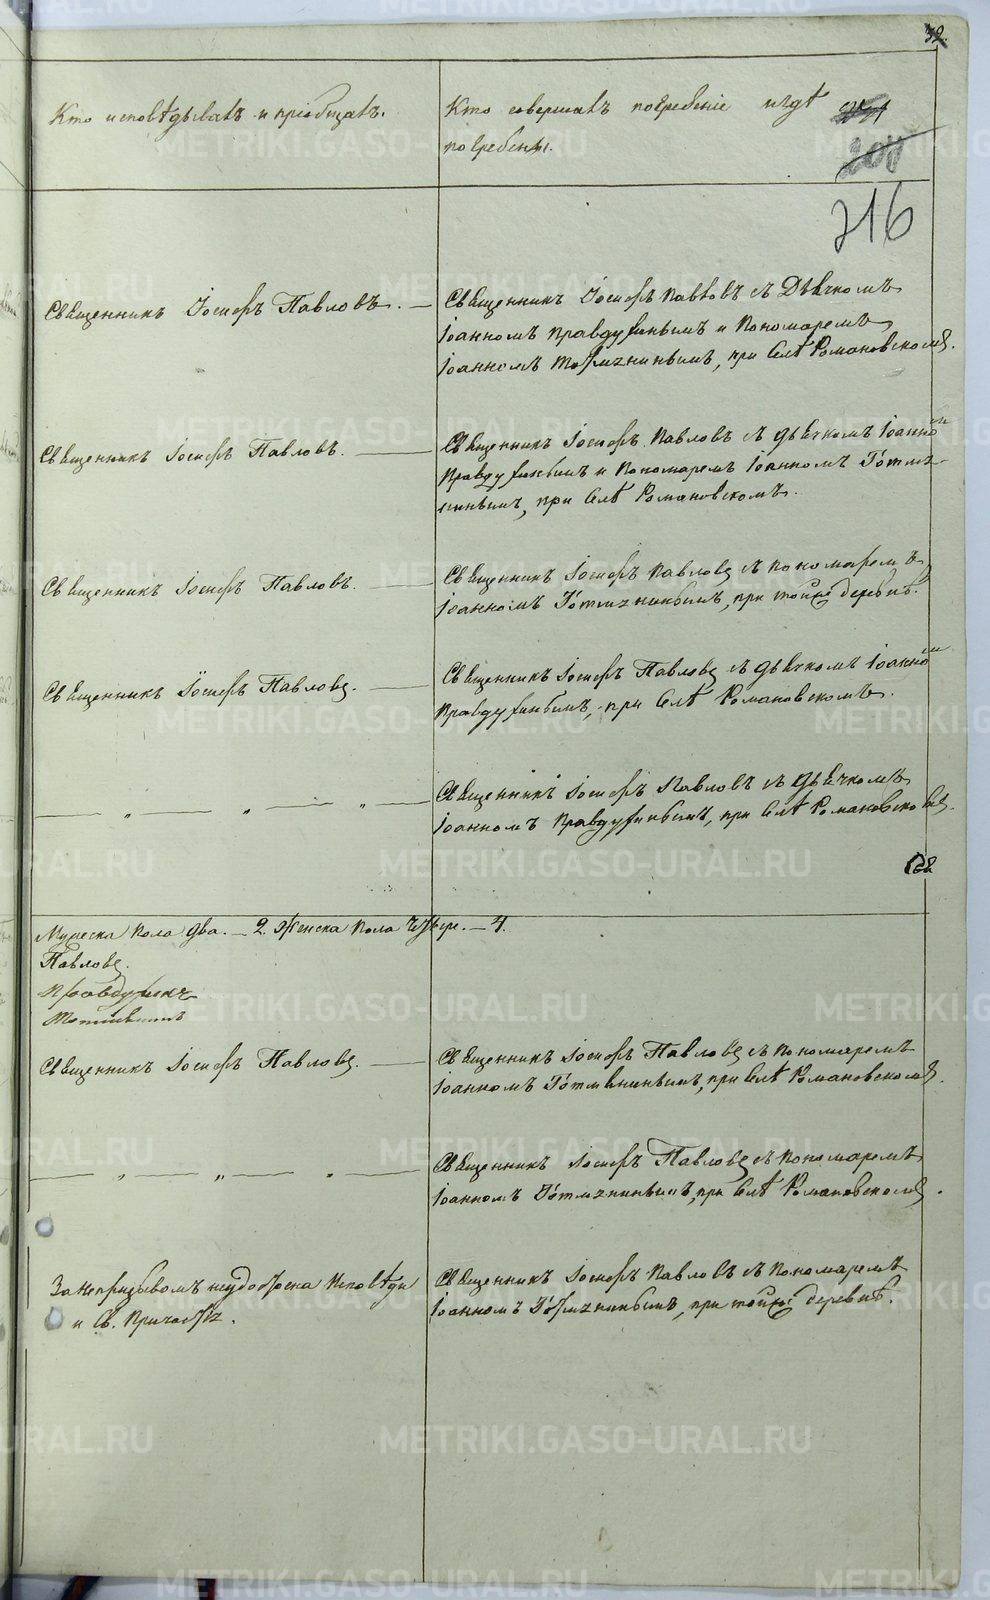 32.
Кто исповѣдывалъ и пріобщалъ.
Кто совершалъ погребеніе и гдѣ
погребены.
201
200
216
Священникъ Іосифъ Павловъ. —
Священникъ Іосифъ Павловъ съ Дьячкомъ
Іоанномъ Правдухинымъ и Пономаремъ
Іоанномъ, при Селѣ Романовскомъ.
Священникъ Іосифъ Павловъ. —
Священникъ Іосифъ Павловъ съ дьячкомъ Іоанномъ
Правдухинымъ и Пономаремъ Іоанномъ
при Селѣ Романовскомъ.
Священникъ Іосифъ Павловъ. —
Священникъ Іосифъ Павловъ съ пономаремъ
Іоанномъ, при тойже деревнѣ.
Священникъ Іосифъ Павловъ. —
Священникъ Іосифъ Павловъ съ дьячкомъ Іоанномъ
Правдухинымъ, при Селѣ Романовскомъ.
— „ — „ — „ —
Священникъ Іосифъ Павловъ съ дьячкомъ
Іоанномъ Правдухинымъ, при Селѣ Романовскомъ.
Мужеска пола два. — 2. Женска пола четыре. — 4.
Павловъ.
Правдухинъ
Священникъ Іосифъ Павловъ. —
Священникъ Іосифъ Павловъ съ пономаремъ
Іоанномъ, при Селѣ Романовскомъ.
— „ — „ — „ —
Священникъ Іосифъ Павловъ съ пономаремъ
Іоанномъ, при Селѣ Романовскомъ.
За непризывомъ неудостоена Исповѣди
и Св. Причастія.
Священникъ Іосифъ Павловъ съ пономаремъ
Іоанномъ, при тойже деревнѣ.
METRIKI.GASO-URAL.RU